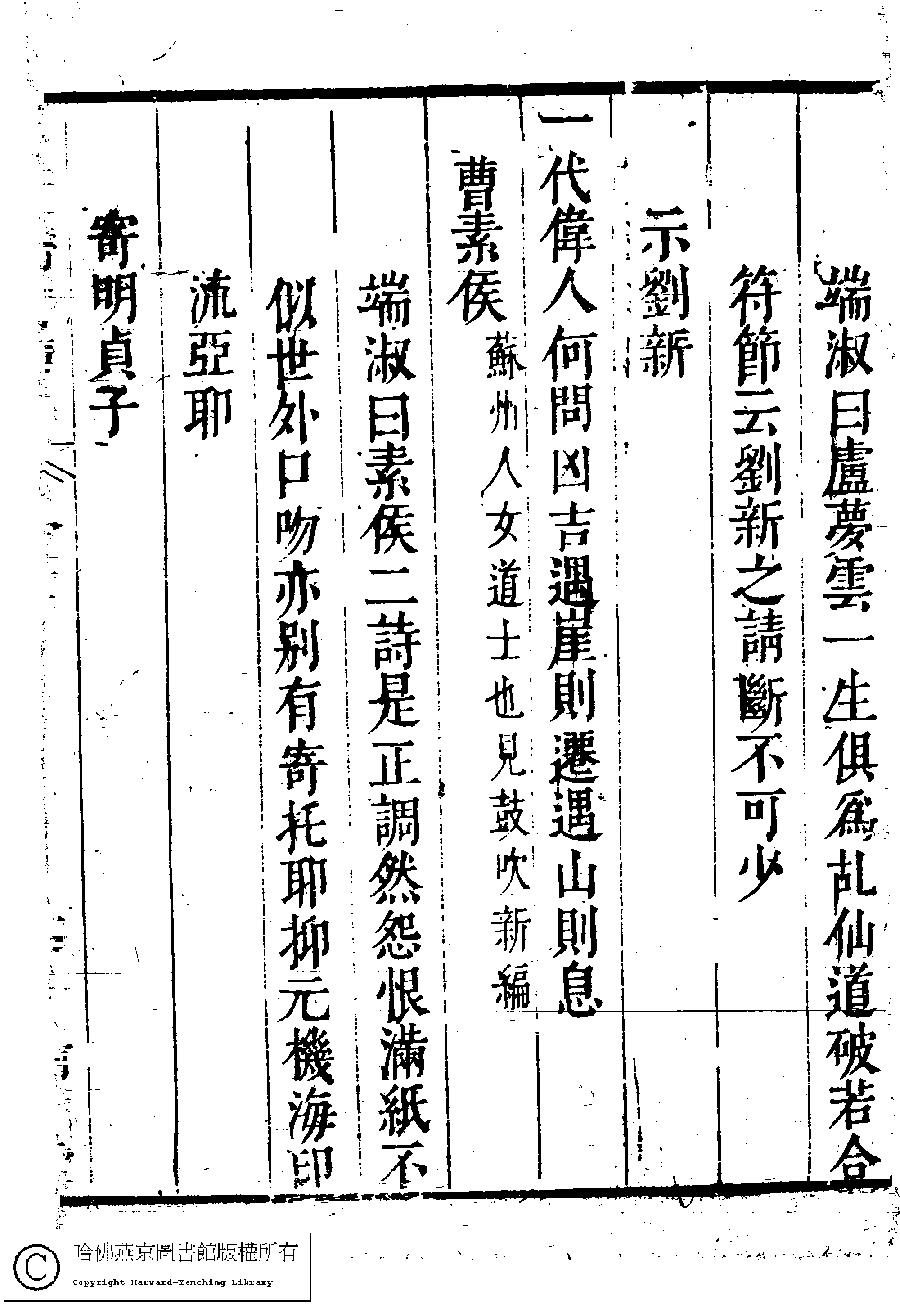 端淑曰盧夢雲一生俱爲乩仙道破若合
符節云劉新之請斷不可少
示劉新
一代偉人何問凶吉遇崖則遷遇山則息
曹素侯蘇州人女道士也見鼓吹新編
端淑曰素侯二詩是正調然怨恨滿紙不
似世外口吻亦别有寄托耶抑元機海印
流亞耶
寄明貞子
哈佛燕京圖書館版權所有
Copyright Harvard-Yenching Library